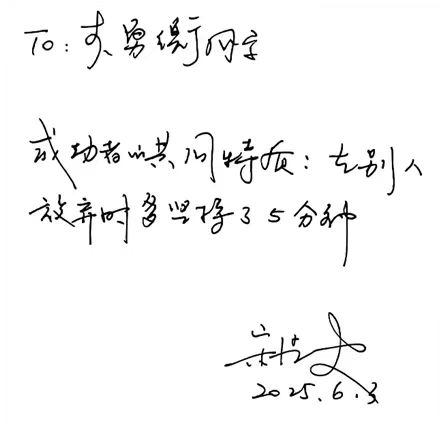 To: 勇 同学
成功者的共同特质: 在别人
放弃时多坚持了5分钟
2025.6.3